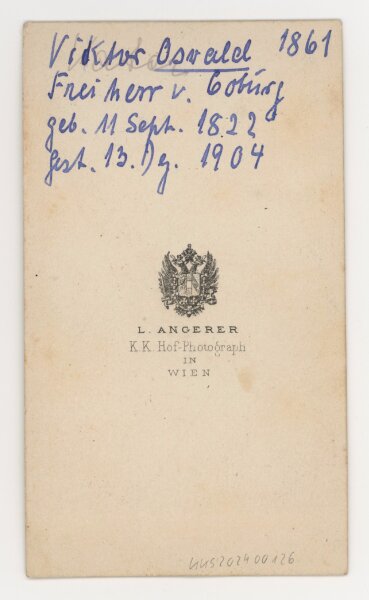 Viktor Oswald 1861
Freiherr v. Coburg
geb. 11 Sept. 1822
gest. 13. Dez. 1904
L. ANGERER
K.K. Hof-Photograph
IN
WIEN